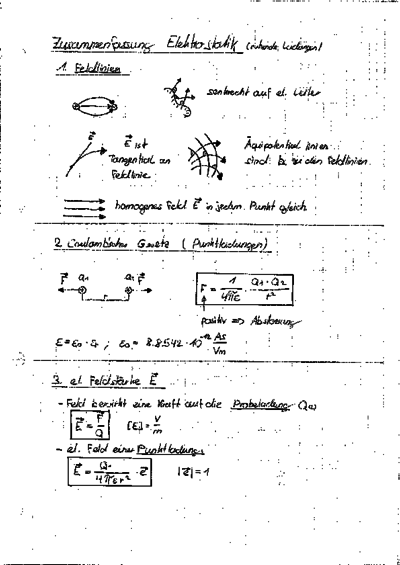 Zusammenfassung Elektrostatik (ruhende Ladungen)
1. Feldlinien
senkrecht auf el. Leiter
E⃗
E⃗ ist
Tangential an
Feldlinie
Äquipotential linien
sind ⊥ zu den Feldlinien
homogenes Feld E⃗ in jedem Punkt gleich
2. Coulombsches Gesetz (Punktladungen)
F⃗ Q1 Q2 F⃗
r
F = 1/(4πε) · (Q1 · Q2)/r²
positiv => Abstossung
ε = ε0 · εr ; ε0 = 8.8542 · 10⁻¹² As/Vm
3. el. Feldstärke E⃗
- Feld bewirkt eine Kraft auf die Probeladung
E⃗ = F⃗/Q [E] = V/m
- el. Feld einer Punktladung
E⃗ = Q/(4πεr²) · e⃗ |e⃗| = 1